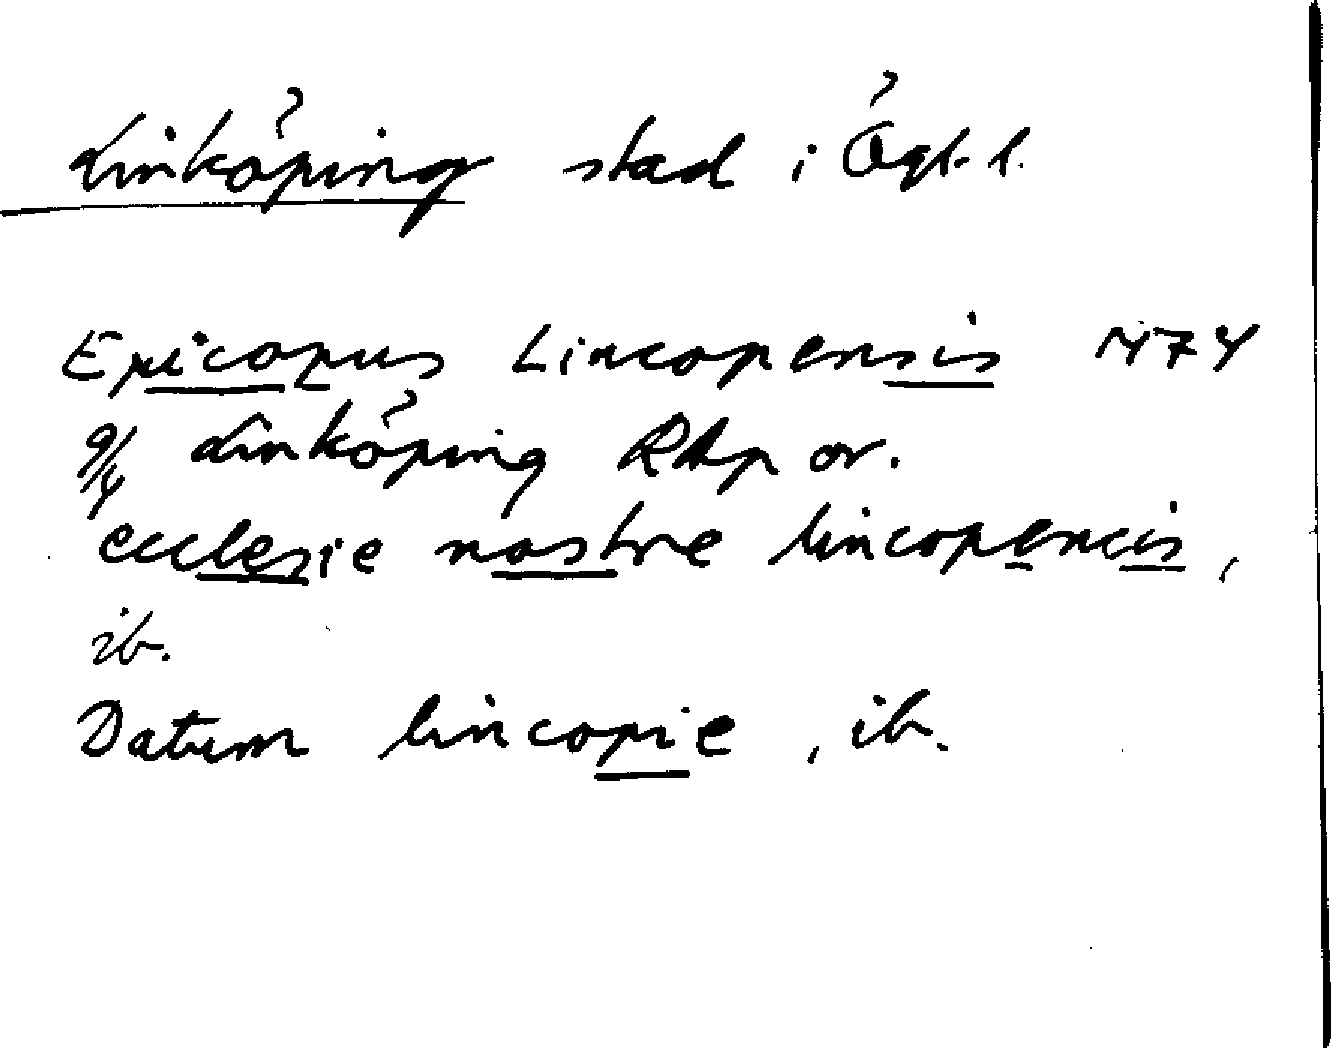 Linköping stad i Ögl. l.
Epicopus Lincopensis 1474
9/4 Linköping RAp or.
ecclesie nostre lincopencis,
ib.
Datum lincopie, ib.